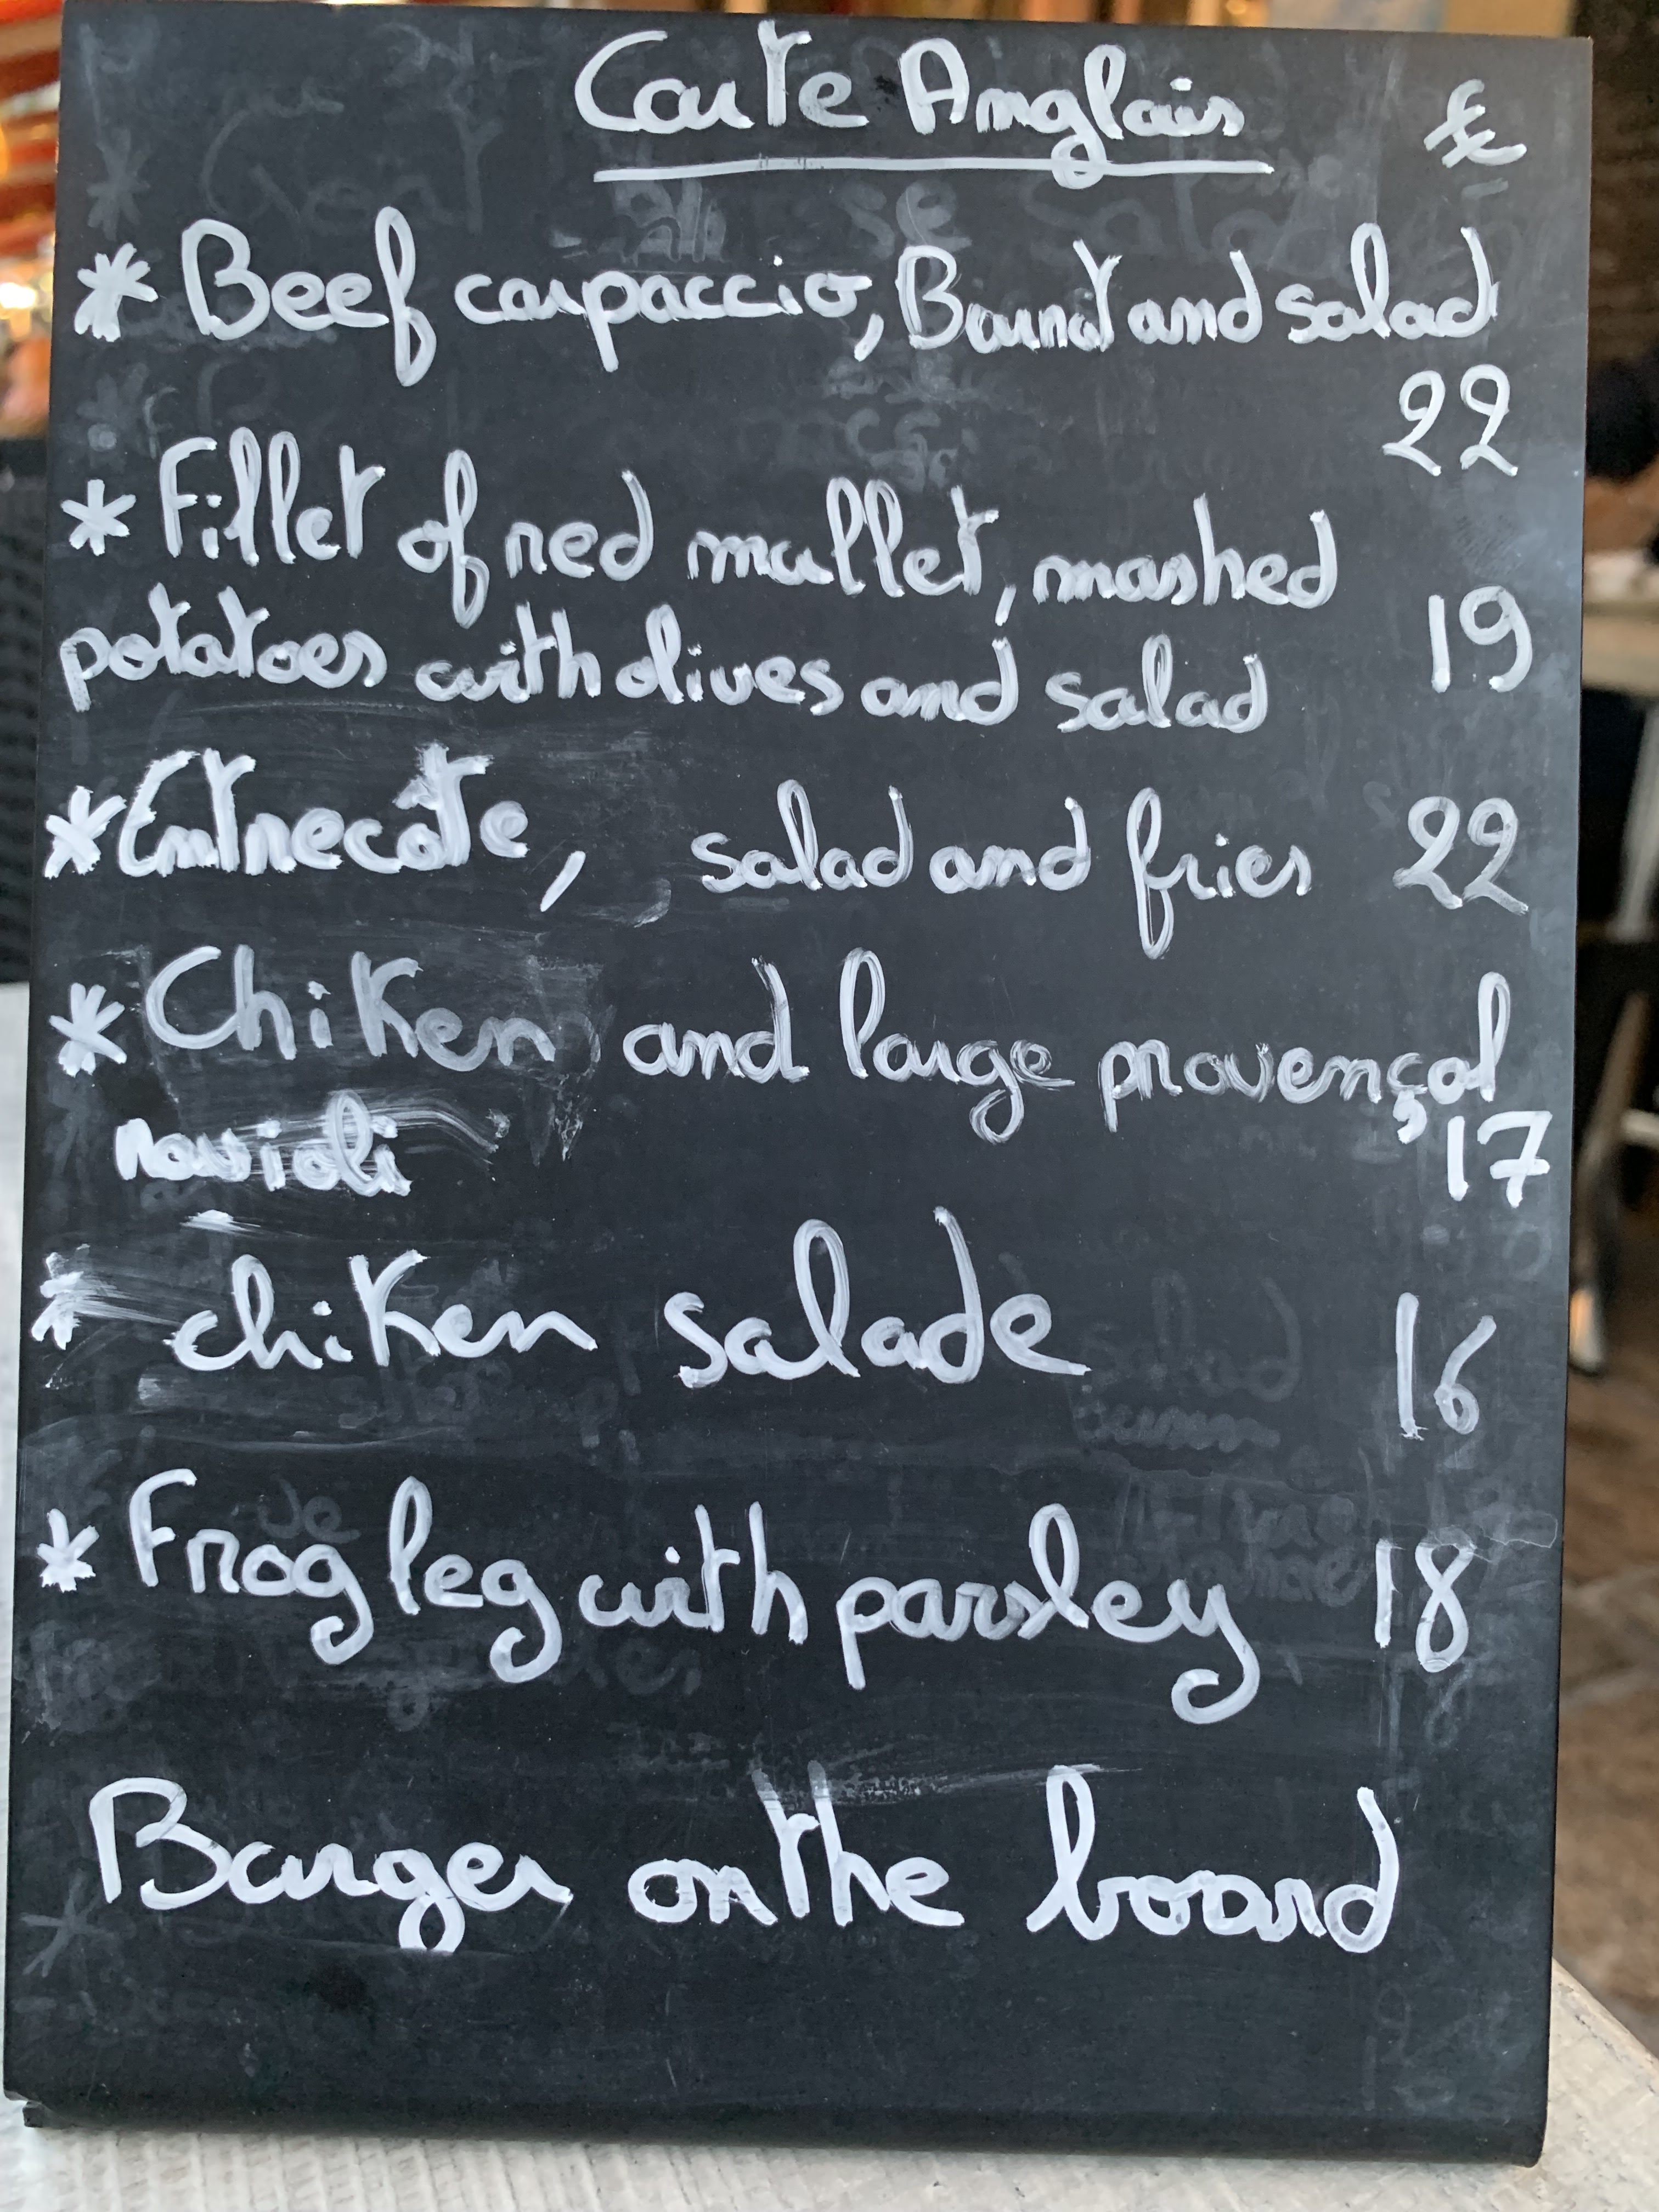 Carte Anglais €
* Beef carpaccio, Burrat and salad
22
* Fillet of red mullet, mashed
potatoes with olives and salad 19
* Entrecote, salad and fries 22
* Chiken and large provençal
ravioli 17
* chiken salade 16
* Frog leg with parsley 18
Burger on the board